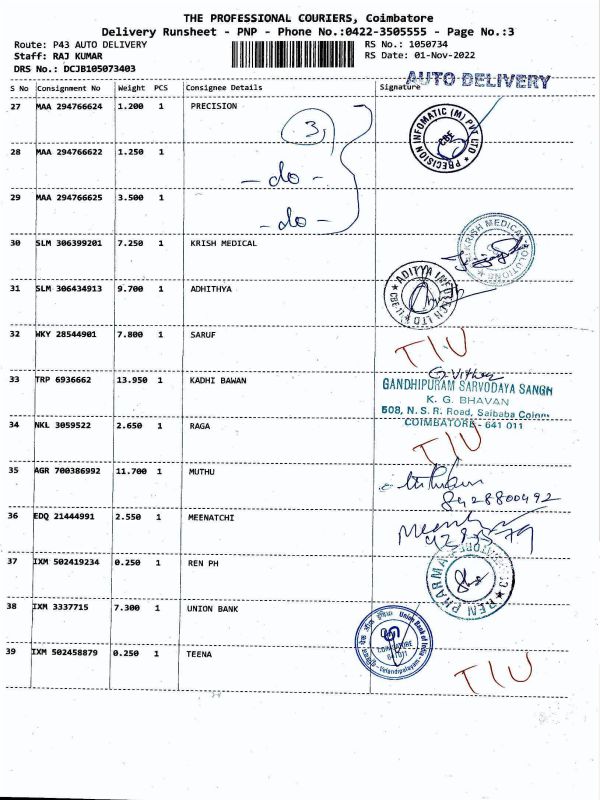 THE PROFESSIONAL COURIERS, Coimbatore
Delivery Runsheet - PNP - Phone No.:0422-3505555 - Page No.:3
Route: P43 AUTO DELIVERY RS No.: 1050734
Staff: RAJ KUMAR RS Date: 01-Nov-2022
DRS No.: DCJB105073403
AUTO DELIVERY
S No Consignment No Weight PCS Consignee Details Signature
27 MAA 294766624 1.200 1 PRECISION
3
PRECISION INFOMATIC (M) PVT LTD
CBE
28 MAA 294766622 1.250 1
- do -
29 MAA 294766625 3.500 1
- do -
30 SLM 306399201 7.250 1 KRISH MEDICAL
KRISH MEDICAL SOLUTIONS
31 SLM 306434913 9.700 1 ADHITHYA
ADITYA INFOTECH LTD
32 WKY 28544901 7.800 1 SARUF
TIU
33 TRP 6936662 13.950 1 KADHI BAWAN
GANDHIPURAM SARVODAYA SANGH
K. G. BHAVAN
508, N. S. R. Road, Saibaba
COIMBATORE - 641 011
34 NKL 3059522 2.650 1 RAGA
TIU
35 AGR 700386992 11.700 1 MUTHU
8428800492
36 EDQ 21444991 2.550 1 MEENATCHI
37 IXM 502419234 0.250 1 REN PH
REN PHARMA
38 IXM 3337715 7.300 1 UNION BANK
Union Bank of India
COIMBATORE
641011
Velandipalayam
39 IXM 502458879 0.250 1 TEENA
TIU